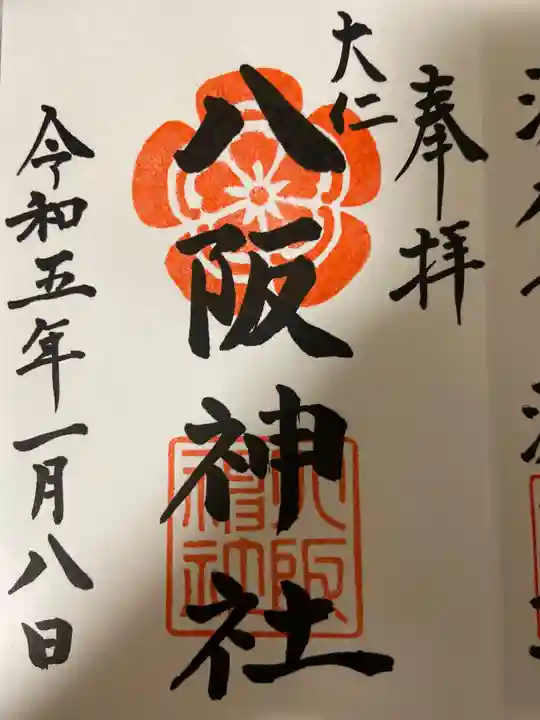 奉拝
大仁
八阪神社
八阪神社
令和五年一月八日